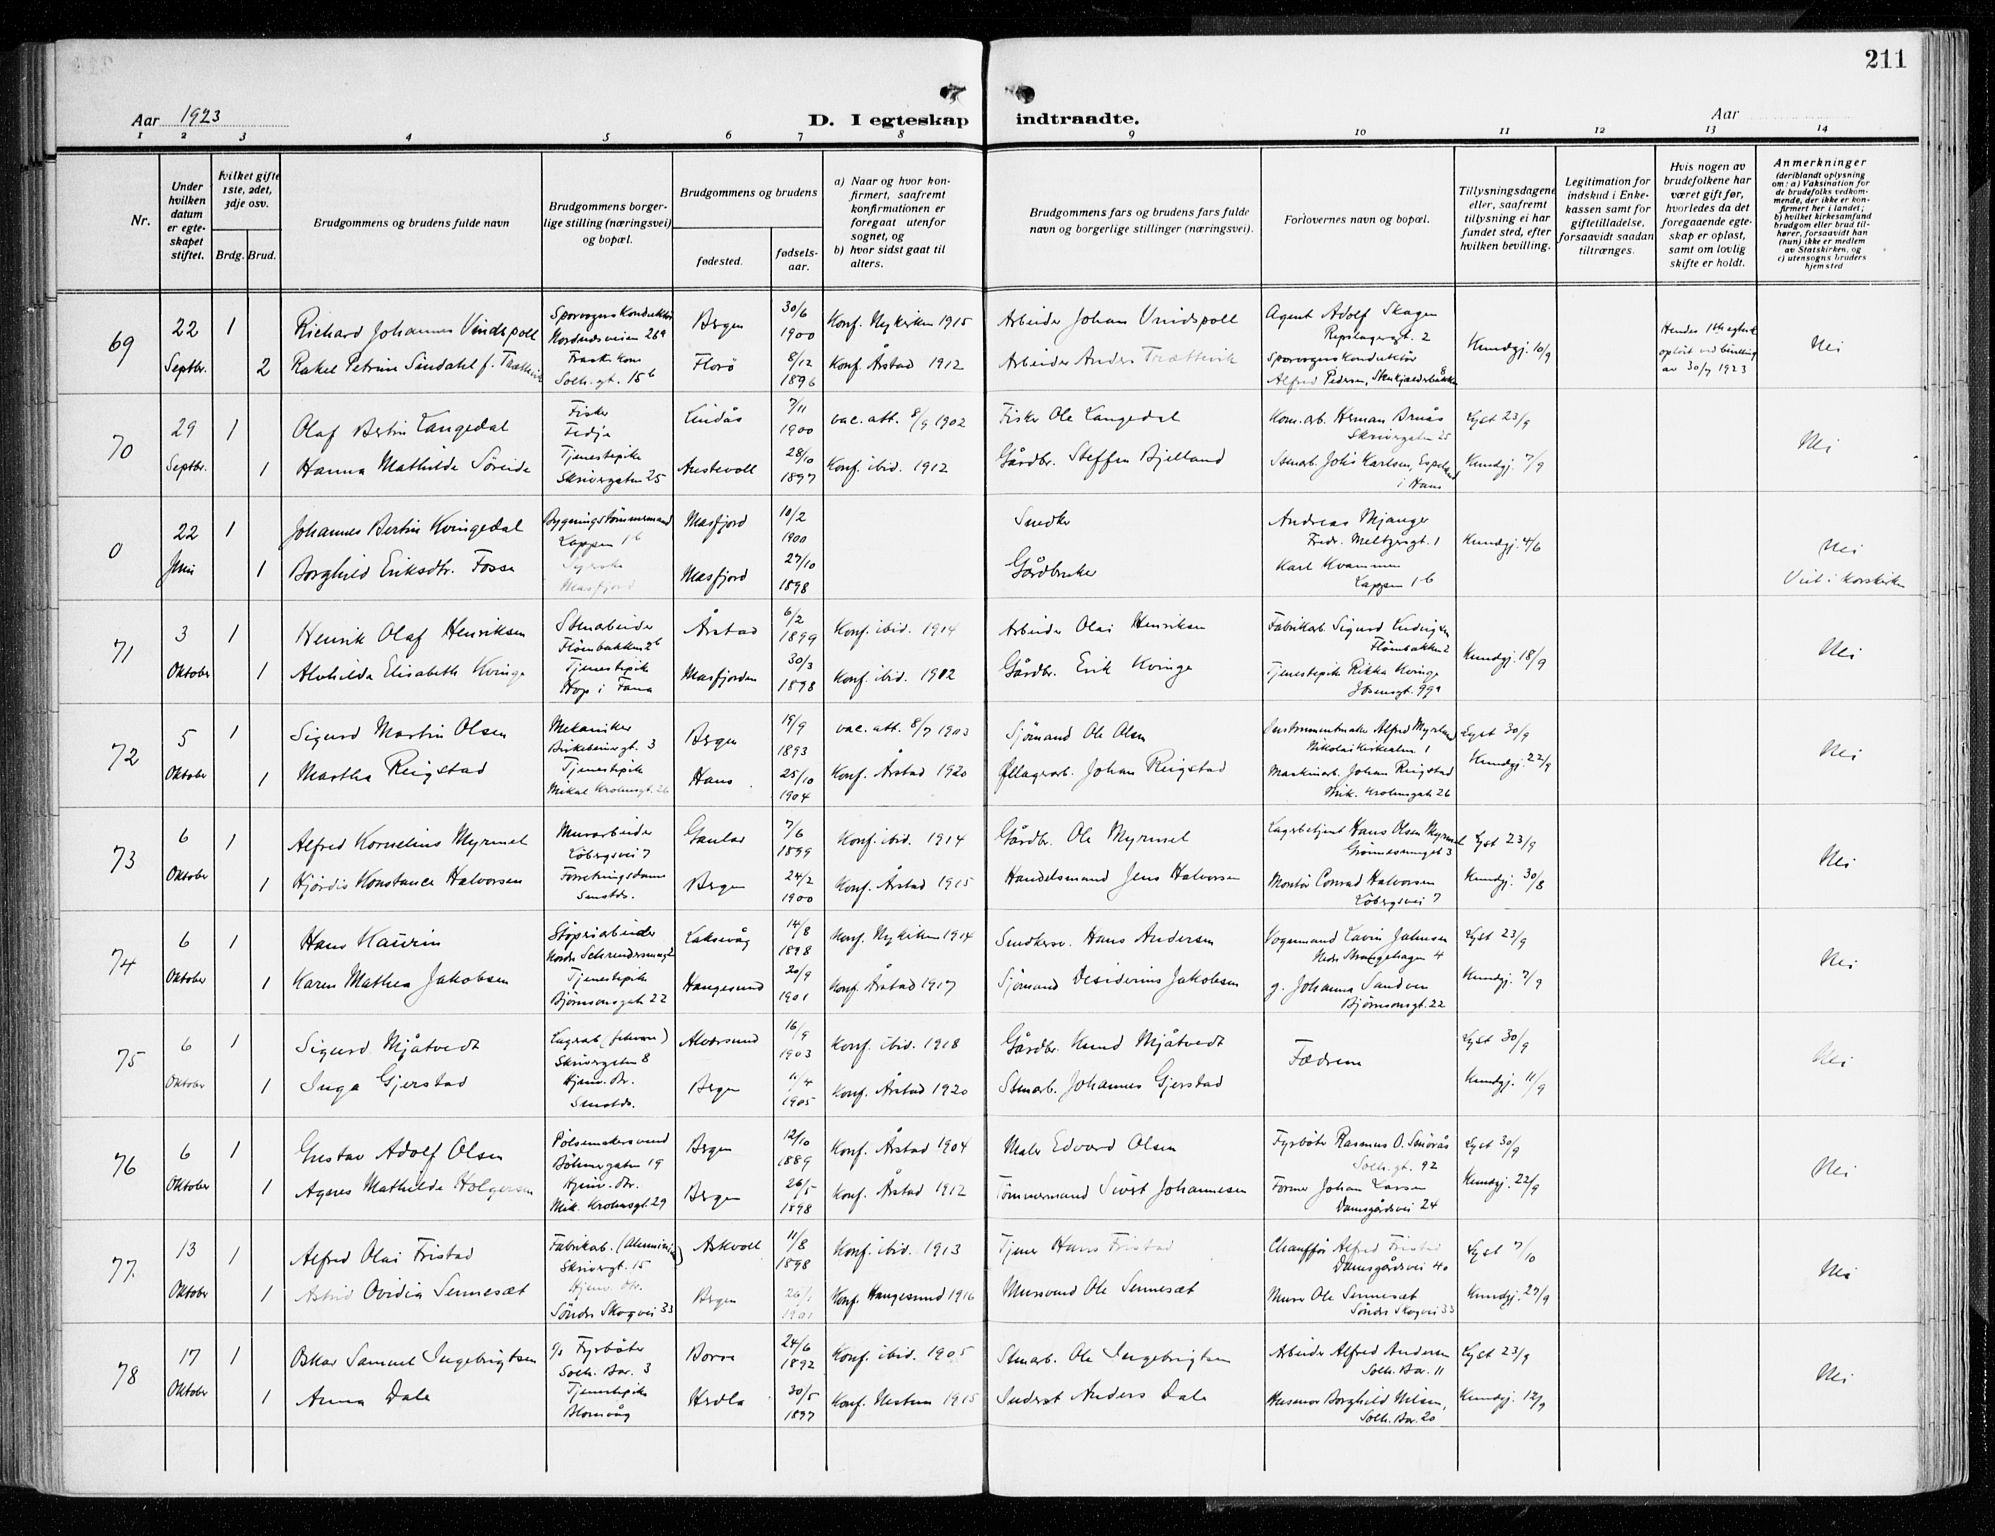 211
Aar 1923
D. I egteskap indtraadte.
Aar
1 2 3 4 5 6 7 8 9 10 11 12 13 14
Nr.
Under hvilken datum er egteskapet stiftet.
Hvilket gifte 1ste, 2det, 3dje osv.
Brdg. Brud.
Brudgommens og brudens fulde navn
Brudgommens borgerlige stilling (næringsvei) og bopæl.
Brudgommens og brudens
fødested.
fødselsaar.
a) Naar og hvor konfirmert, saafremt konfirmationen er foregaat utenfor sognet, og
b) hvor sidst gaat til alters.
Brudgommens fars og brudens fars fulde navn og borgerlige stillinger (næringsvei).
Forlovernes navn og bopæl.
Tillysningsdagene eller, saafremt tillysning ei har fundet sted, efter hvilken bevilling.
Legitimation for indskud i Enkekassen samt for giftetilladelse, forsaavidt saadan tiltrænges.
Hvis nogen av brudefolkene har været gift før, hvorledes da det foregaaende egteskap er opløst, samt om lovlig skifte er holdt.
Anmerkninger
(deriblandt oplysning om: a) Vaksination for de brudefolks vedkommende, der ikke er konfirmert her i landet; b) hvilket kirkesamfund brudgom eller brud tilhører, forsaavidt han (hun) ikke er medlem av Statskirken, og c) utensogns bruders hjemsted
69
22 1 Richard Johannes Vindspoll Sporvogns Konduktør Bergen 30/6 1900 Konf. Nykirken 1915 Arbeider Johan Vindspoll Agent Adolf Skagen
Septbr. 2 Rakel Petrine Sundahl f. Trættevik Solh. gt. 15b Florø 8/12 1896 Konf. Årstad 1912 Arbeider Anders Trættevik Sporvognskonduktør Alfred Pedersen, Kundgj. 10/9
opløst ved bevilling av 30/7 1923
Nei
70
29 1 Olaf Bertin Langedal Fisker Fedje Lindås 7/11 1900 vac. att. 8/9 1902 Fisker Ole Langedal Herman Brnås Skrivergaten 25 Lyst 23/9
Septbr. 1 Hanna Mathilde Søreide Tjenestepike Skrivergaten 25 Austevoll 28/10 1897 Konf. ibid. 1912 Gårdbr. Steffen Bjelland Stenarb. Johs Karlsen, Espeland i Haus Kundgj. 7/9
Nei
0
22 1 Johannes Bertin Kvingedal Bygningstømmermand Lappen 16 Masfjord 10/2 1900 Snedker Andreas Mjanger Fredr. Meltzersgt. 1 Kundgj. 4/6
Juni 1 Borghild Eriksdtr. Fosse Syerske Masfjord Masfjord 27/10 1898 Gårdbruker Karl Kvammen Lappen 16
Nei
Viet i Korskirken
71
3 1 Henrik Olaf Henriksen Stenarbeider Fløenbakken 26 Årstad 6/2 1899 Konf. ibid. 1914 Arbeider Olai Henriksen Fabrikarb. Sigurd Ludvigsen Fløenbakken 2
Oktober 1 Alvhilde Elisabeth Kvinge Tjenestepik Hop i Fana Masfjorden 30/3 1898 Konf. ibid. 1902 Gårdbr. Erik Kvinge Tjenestepik Rikka Kvinge Ibsensgt. 99a Kundgj. 18/9
Nei
72
5 1 Sigurd Martin Olsen Mekaniker Birkebeinersgt. 3 Bergen 19/9 1893 vac. att. 8/7 1903 Sjømand Ole Olsen Instrumentmaker Alfred Myrland Nikolaikirkealm. 1 Lyst 30/9
Oktober 1 Martha Ringstad Tjenestepik Mikal Krohnsgt. 26 Haus 25/10 1904 Konf. Årstad 1920 Øllagerarb. Johan Ringstad Maskinarb. Johan Ringstad Mik. Krohnsgate 26 Kundgj. 22/9
Nei
73
6 1 Alfred Kornelius Myrmel Murarbeider Løbergsvei 7 Gaular 7/6 1899 Konf. ibid. 1914 Gårdbr. Ole Myrmel Lagerbetjent Hans Olsen Myrmel Lyst 23/9
Oktober 1 Hjørdis Konstance Halvorsen Forretningsdame Smstds. Bergen 24/2 1900 Konf. Årstad 1915 Handelsmand Jens Halvorsen Montør Conrad Halvorsen Løbergsvei 7 Kundgj. 30/8
Nei
74
6 1 Hans Kaurin Støperiarbeider Laksevåg 14/8 1898 Konf. Nykirken 1914 Snedkersv. Hans Andersen Vognmand Lavin Johnsen Lyst 23/9
Oktober 1 Karen Mathea Jakobsen Tjenestepik Bjørnsonsgate 22 Haugesund 20/9 1901 Konf. Årstad 1917 Sjømand Desiderius Jakobsen g. Johanna Sandven Bjørnsonsgt. 22 Kundgj. 7/9
Nei
75
6 1 Sigurd Mjåtvedt Lagerarb. Skrivergaten 8 Alversund 16/9 1903 Konf. ibid. 1918 Gårdbr. Knud Mjåtvedt Fædrene Lyst 30/9
Oktober 1 Inga Gjerstad Hjemv. dtr. Smstds. Bergen 11/4 1905 Konf. Årstad 1920 Stenarb. Johannes Gjerstad Kundgj. 11/9
Nei
76
6 1 Gustav Adolf Olsen Pølsemakersvend Bøhmergaten 19 Bergen 12/10 1889 Konf. Årstad 1904 Maler Edvard Olsen Fyrbøter Rasmus O. Smørås Solh. gt. 92 Lyst 30/9
Oktober 1 Agnes Mathilde Holgersen Hjemv. dtr. Mik. Krohnsgt. 29 Bergen 26/5 1898 Konf. Årstad 1912 Tømmermand Sivert Johannesen Former Johan Larsen Damsgårdsvei 24 Kundgj. 22/9
Nei
77.
13 1 Alfred Olai Fristad Fabrikarb. (Aluminium) Skrivergt. 15 Askvoll 11/8 1898 Konf. ibid. 1913 Tjener Hans Fristad Chauffør Alfred Fristad Damsgårdsvei 40 Lyst 7/10
Oktober 1 Astrid Ovidia Sennesæt Hjemv. dtr. Søndr. Skogvei 33 Bergen 1901 Konf. Haugesund 1916 Mursvend Ole Sennesæt Murer Ole Sennesæt Søndr. Skogvei 33 Kundgj. 27/9
Nei
78
17 1 Oskar Samuel Ingebrigtsen Fyrbøter Solh. Bar. 3 24/6 1892 Konf. ibid. 1905 Stenarb. Ole Ingebrigtsen Arbeider Alfred Andersen Solh. Bar. 11 Lyst 23/9
Oktober 1 Anna Dale Tjenestepik Blomvåg Herdla 30/5 1897 Konf. Nesttun 1915 Inderst Anders Dale Husmor Borghild Nilsen, Solh. Bar. 20 Kundgj. 12/9
Nei